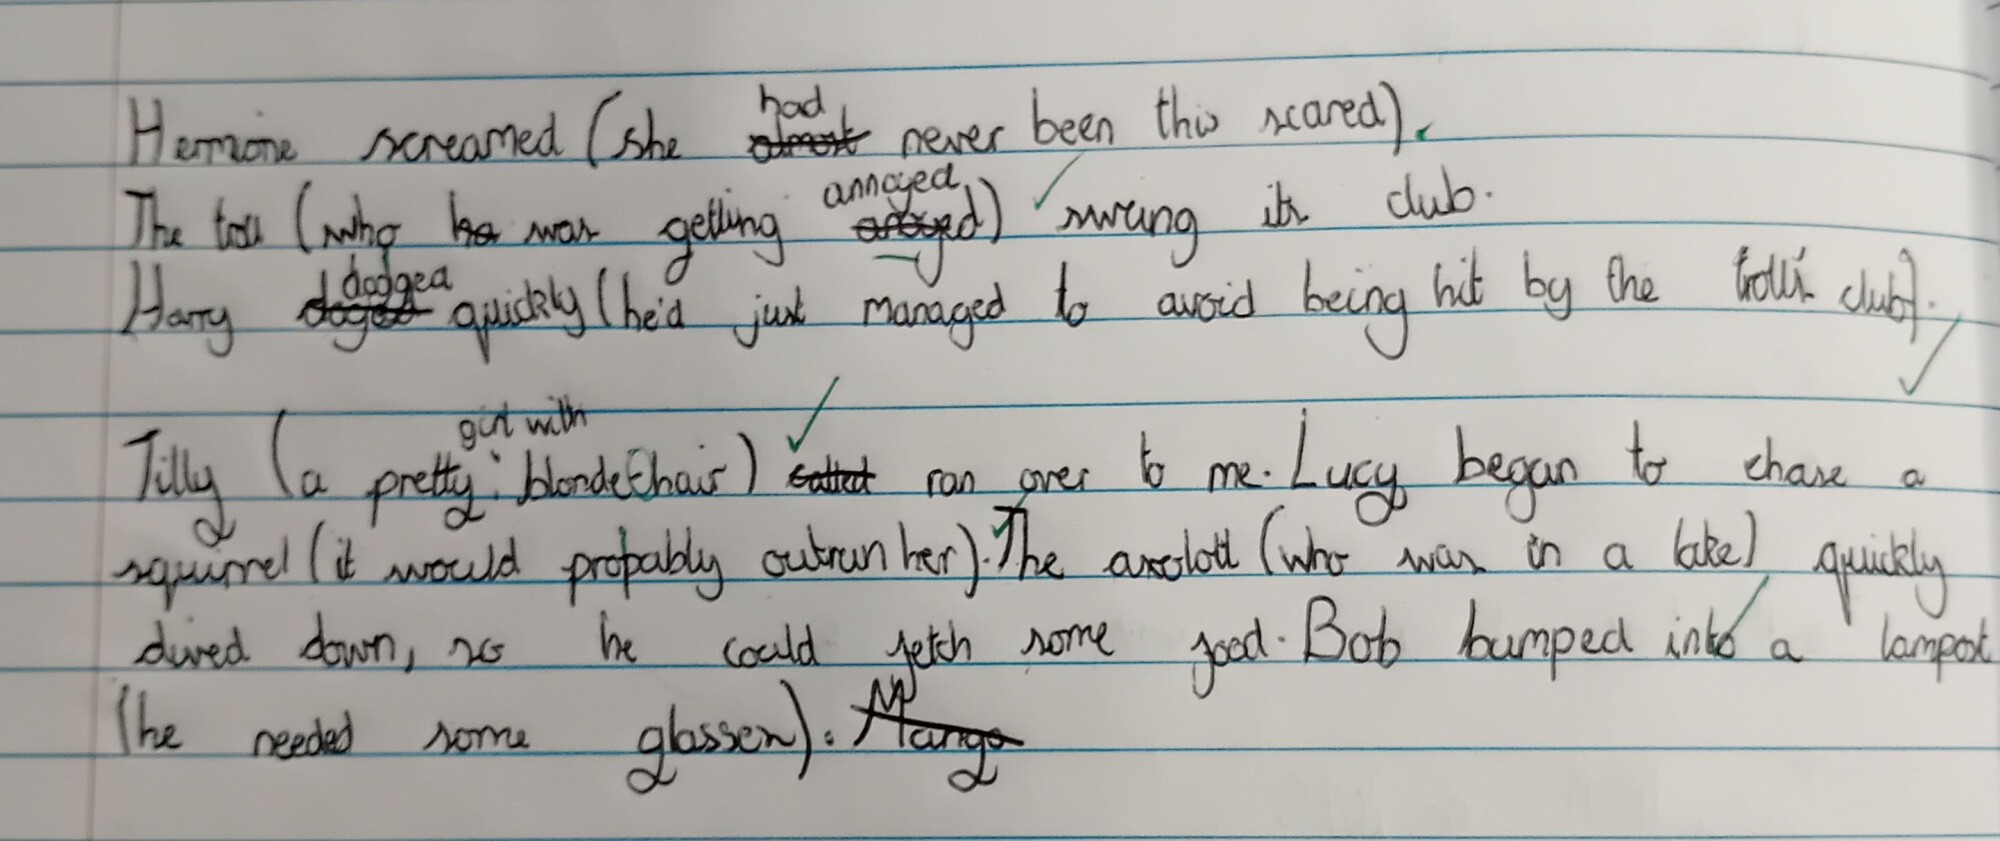 Hermione screamed (she had never been this scared).
The troll (who was getting annoyed) swung its club.
Harry dodged quickly (he'd just managed to avoid being hit by the troll's club).
Tilly (a pretty girl with blonde hair) ran over to me. Lucy began to chase a
squirrel (it would probably outrun her). The axolotl (who was in a lake) quickly
dived down, so he could fetch some food. Bob bumped into a lampost
(he needed some glasses).